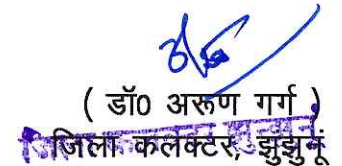 ( डॉ0 अरूण गर्ग )
जिला कलक्टर, झुझुनूं